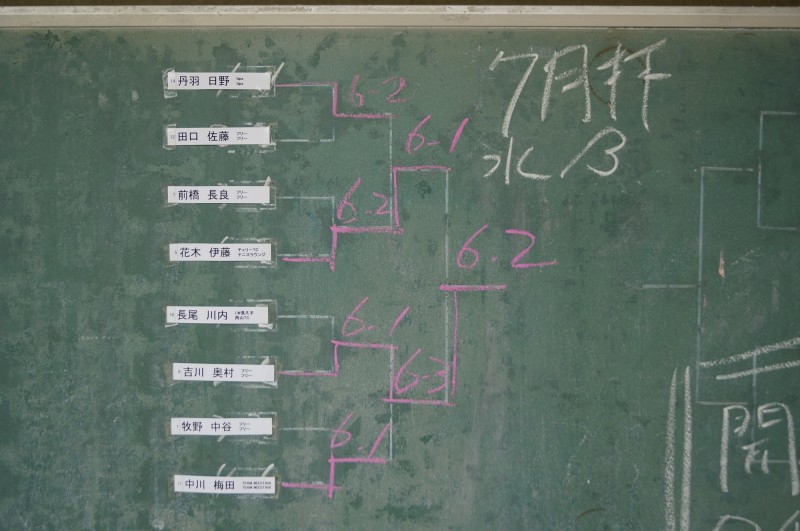 7月杯
水B
丹羽 日野
6-2
田口 佐藤 フリー フリー
6-1
前橋 長良 フリー フリー
6-2
花木 伊藤 チェリーTC テニスラウンジ
6-2
長尾 川内
6-1
吉川 奥村 フリー フリー
6-3
牧野 中谷 フリー フリー
6-1
中川 梅田
開